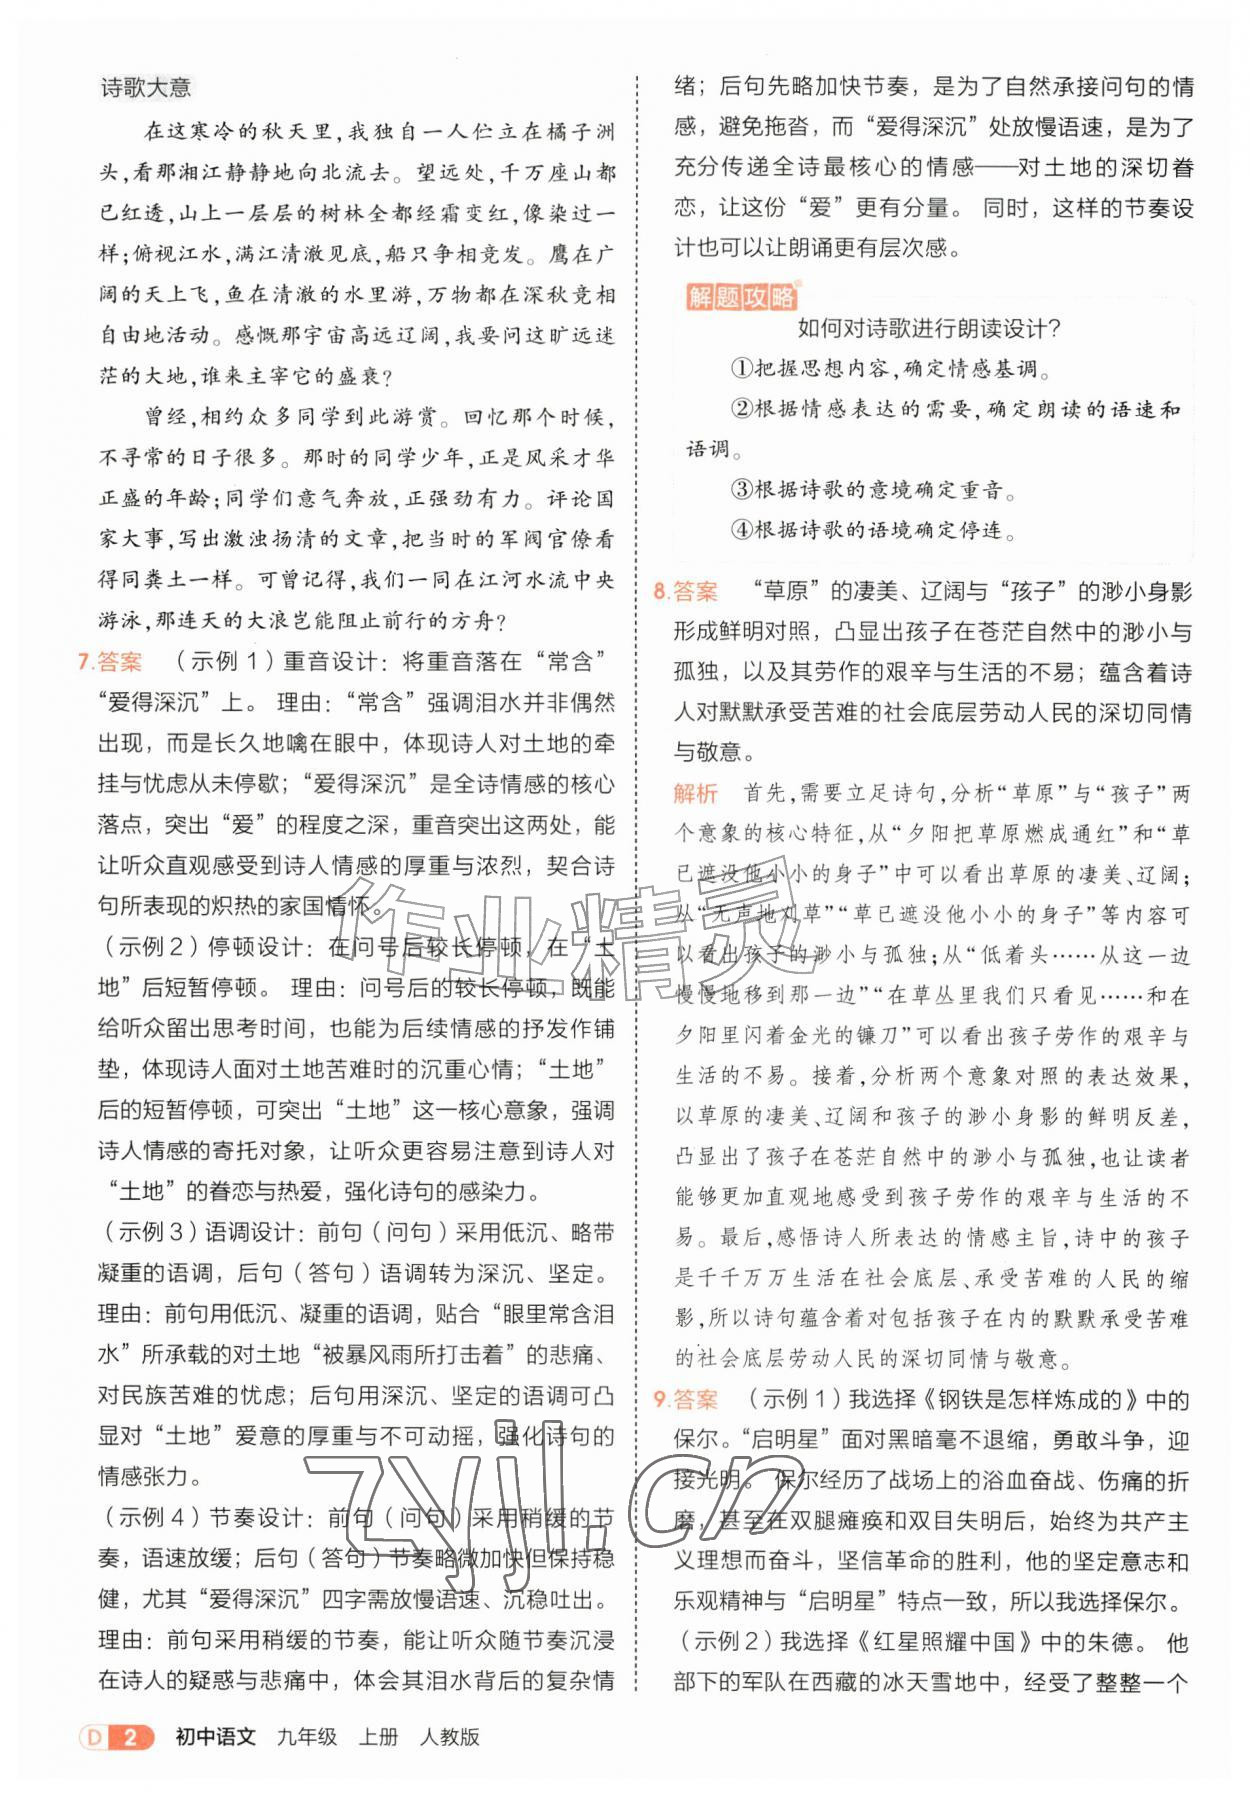 诗歌大意
在这寒冷的秋天里,我独自一人伫立在橘子洲
头,看那湘江静静地向北流去。望远处,千万座山都
已红透,山上一层层的树林全都经霜变红,像染过一
样;俯视江水,满江清澈见底,船只争相竞发。鹰在广
阔的天上飞,鱼在清澈的水里游,万物都在深秋竞相
自由地活动。感慨那宇宙高远辽阔,我要问这旷远迷
茫的大地,谁来主宰它的盛衰?
曾经,相约众多同学到此游赏。回忆那个时候,
不寻常的日子很多。那时的同学少年,正是风采才华
正盛的年龄;同学们意气奔放,正强劲有力。评论国
家大事,写出激浊扬清的文章,把当时的军阀官僚看
得同粪土一样。可曾记得,我们一同在江河水流中央
游泳,那连天的大浪岂能阻止前行的方舟?
7.答案 (示例1)重音设计：将重音落在“常含”
“爱得深沉”上。 理由：“常含”强调泪水并非偶然
出现，而是长久地噙在眼中，体现诗人对土地的牵
挂与忧虑从未停歇；“爱得深沉”是全诗情感的核心
落点，突出“爱”的程度之深，重音突出这两处，能
让听众直观感受到诗人情感的厚重与浓烈，契合诗
句所表现的炽热的家国情怀。
(示例2)停顿设计：在问号后较长停顿，在“土
地”后短暂停顿。 理由：问号后的较长停顿，既能
给听众留出思考时间，也能为后续情感的抒发作铺
垫，体现诗人面对土地苦难时的沉重心情；“土地”
后的短暂停顿，可突出“土地”这一核心意象，强调
诗人情感的寄托对象，让听众更容易注意到诗人对
“土地”的眷恋与热爱，强化诗句的感染力。
(示例3)语调设计：前句(问句)采用低沉、略带
凝重的语调，后句(答句)语调转为深沉、坚定。
理由：前句用低沉、凝重的语调，贴合“眼里常含泪
水”所承载的对土地“被暴风雨所打击着”的悲痛、
对民族苦难的忧虑；后句用深沉、坚定的语调可凸
显对“土地”爱意的厚重与不可动摇，强化诗句的
情感张力。
(示例4)节奏设计：前句(问句)采用稍缓的节
奏，语速放缓；后句(答句)节奏略微加快但保持稳
健，尤其“爱得深沉”四字需放慢语速、沉稳吐出。
理由：前句采用稍缓的节奏，能让听众随节奏沉浸
在诗人的疑惑与悲痛中，体会其泪水背后的复杂情
绪；后句先略加快节奏，是为了自然承接问句的情
感，避免拖沓，而“爱得深沉”处放慢语速，是为了
充分传递全诗最核心的情感——对土地的深切眷
恋，让这份“爱”更有分量。 同时，这样的节奏设
计也可以让朗诵更有层次感。
解题攻略
如何对诗歌进行朗读设计?
①把握思想内容,确定情感基调。
②根据情感表达的需要,确定朗读的语速和
语调。
③根据诗歌的意境确定重音。
④根据诗歌的语境确定停连。
8.答案 “草原”的凄美、辽阔与“孩子”的渺小身影
形成鲜明对照，凸显出孩子在苍茫自然中的渺小与
孤独，以及其劳作的艰辛与生活的不易；蕴含着诗
人对默默承受苦难的社会底层劳动人民的深切同情
与敬意。
解析 首先,需要立足诗句,分析“草原”与“孩子”两
个意象的核心特征,从“夕阳把草原燃成通红”和“草
已遮没他小小的身子”中可以看出草原的凄美、辽阔;
从“无声地刈草”“草已遮没他小小的身子”等内容可
以看出孩子的渺小与孤独;从“低着头……从这一边
慢慢地移到那一边”“在草丛里我们只看见……和在
夕阳里闪着金光的镰刀”可以看出孩子劳作的艰辛与
生活的不易。接着,分析两个意象对照的表达效果,
以草原的凄美、辽阔和孩子的渺小身影的鲜明反差,
凸显出了孩子在苍茫自然中的渺小与孤独,也让读者
能够更加直观地感受到孩子劳作的艰辛与生活的不
易。最后,感悟诗人所表达的情感主旨,诗中的孩子
是千千万万生活在社会底层、承受苦难的人民的缩
影,所以诗句蕴含着对包括孩子在内的默默承受苦难
的社会底层劳动人民的深切同情与敬意。
9.答案 (示例1)我选择《钢铁是怎样炼成的》中的
保尔。“启明星”面对黑暗毫不退缩，勇敢斗争，迎
接光明。 保尔经历了战场上的浴血奋战、伤痛的折
磨，甚至在双腿瘫痪和双目失明后，始终为共产主
义理想而奋斗，坚信革命的胜利，他的坚定意志和
乐观精神与“启明星”特点一致，所以我选择保尔。
(示例2)我选择《红星照耀中国》中的朱德。 他
部下的军队在西藏的冰天雪地中，经受了整整一个
作业精灵
zyjl.cn
D 2 初中语文 九年级 上册 人教版